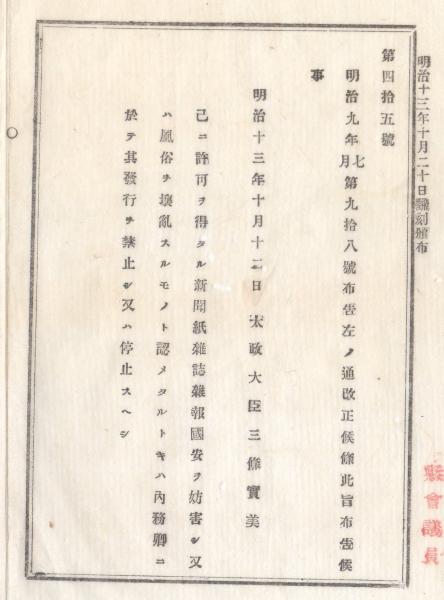 明治十三年十月二十日飜刻頒布
第四拾五號
明治九年七月第九拾八號布告左ノ通改正候條此旨布告候
事
明治十三年十月十二日 太政大臣三條實美
已ニ許可ヲ得タル新聞紙雜誌雜報國安ヲ妨害シ又
ハ風俗ヲ壞亂スルモノト認メタルトキハ內務卿ニ
於テ其發行ヲ禁止シ又ハ停止スヘシ
會議員